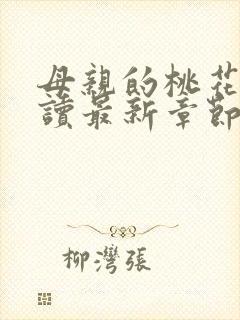 母親的桃花
讀最新章節
柳灣張